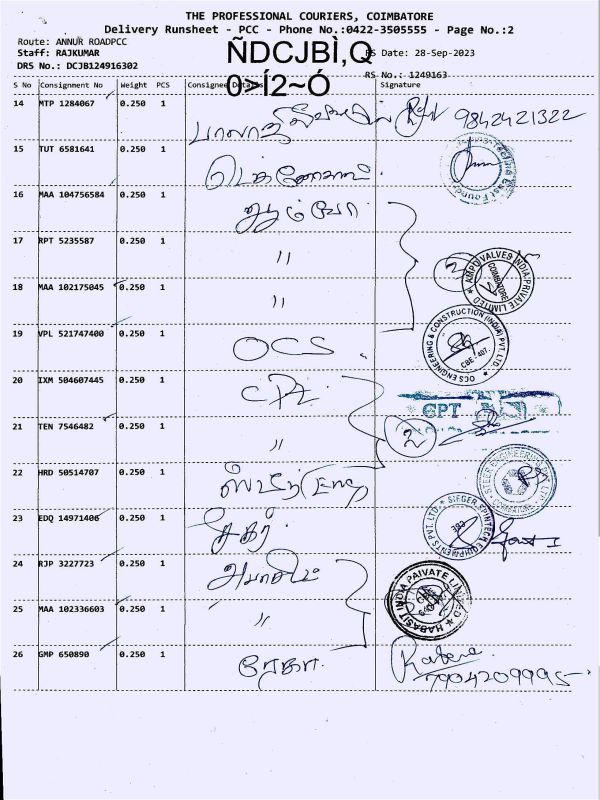 THE PROFESSIONAL COURIERS, COIMBATORE
Delivery Runsheet - PCC - Phone No.:0422-3505555 - Page No.:2
Route: ANNUR ROADPCC
Staff: RAJKUMAR
DRS No.: DCJB124916302
ÑDCJBÌ,Q
0>Í2~Ó
RS Date: 28-Sep-2023
RS No.: 1249163
S No Consignment No Weight PCS Consignee Details Signature
14 MTP 1284067 0.250 1 பாலாஜி 9842421322
15 TUT 6581641 0.250 1
16 MAA 104756584 0.250 1
17 RPT 5235587 0.250 1 〃
2
AMPO VALVES INDIA PRIVATE LIMITED
COIMBATORE
18 MAA 102175045 0.250 1 〃
19 VPL 521747400 0.250 1 OCS
OCS ENGINEERING & CONSTRUCTION (INDIA) PVT. LTD.
CBE - 407.
20 IXM 504607445 0.250 1 CPT
GPT
21 TEN 7546482 0.250 1 〃 2
22 HRD 50514707 0.250 1
23 EDQ 14971406 0.250 1 சேகர்
SIEGER SPINTECH EQUIPMENTS PVT. LTD.
24 RJP 3227723 0.250 1
HABASIT INDIA PRIVATE LIMITED
25 MAA 102336603 0.250 1 〃
26 GMP 650890 0.250 1 ரேகா
7904209995